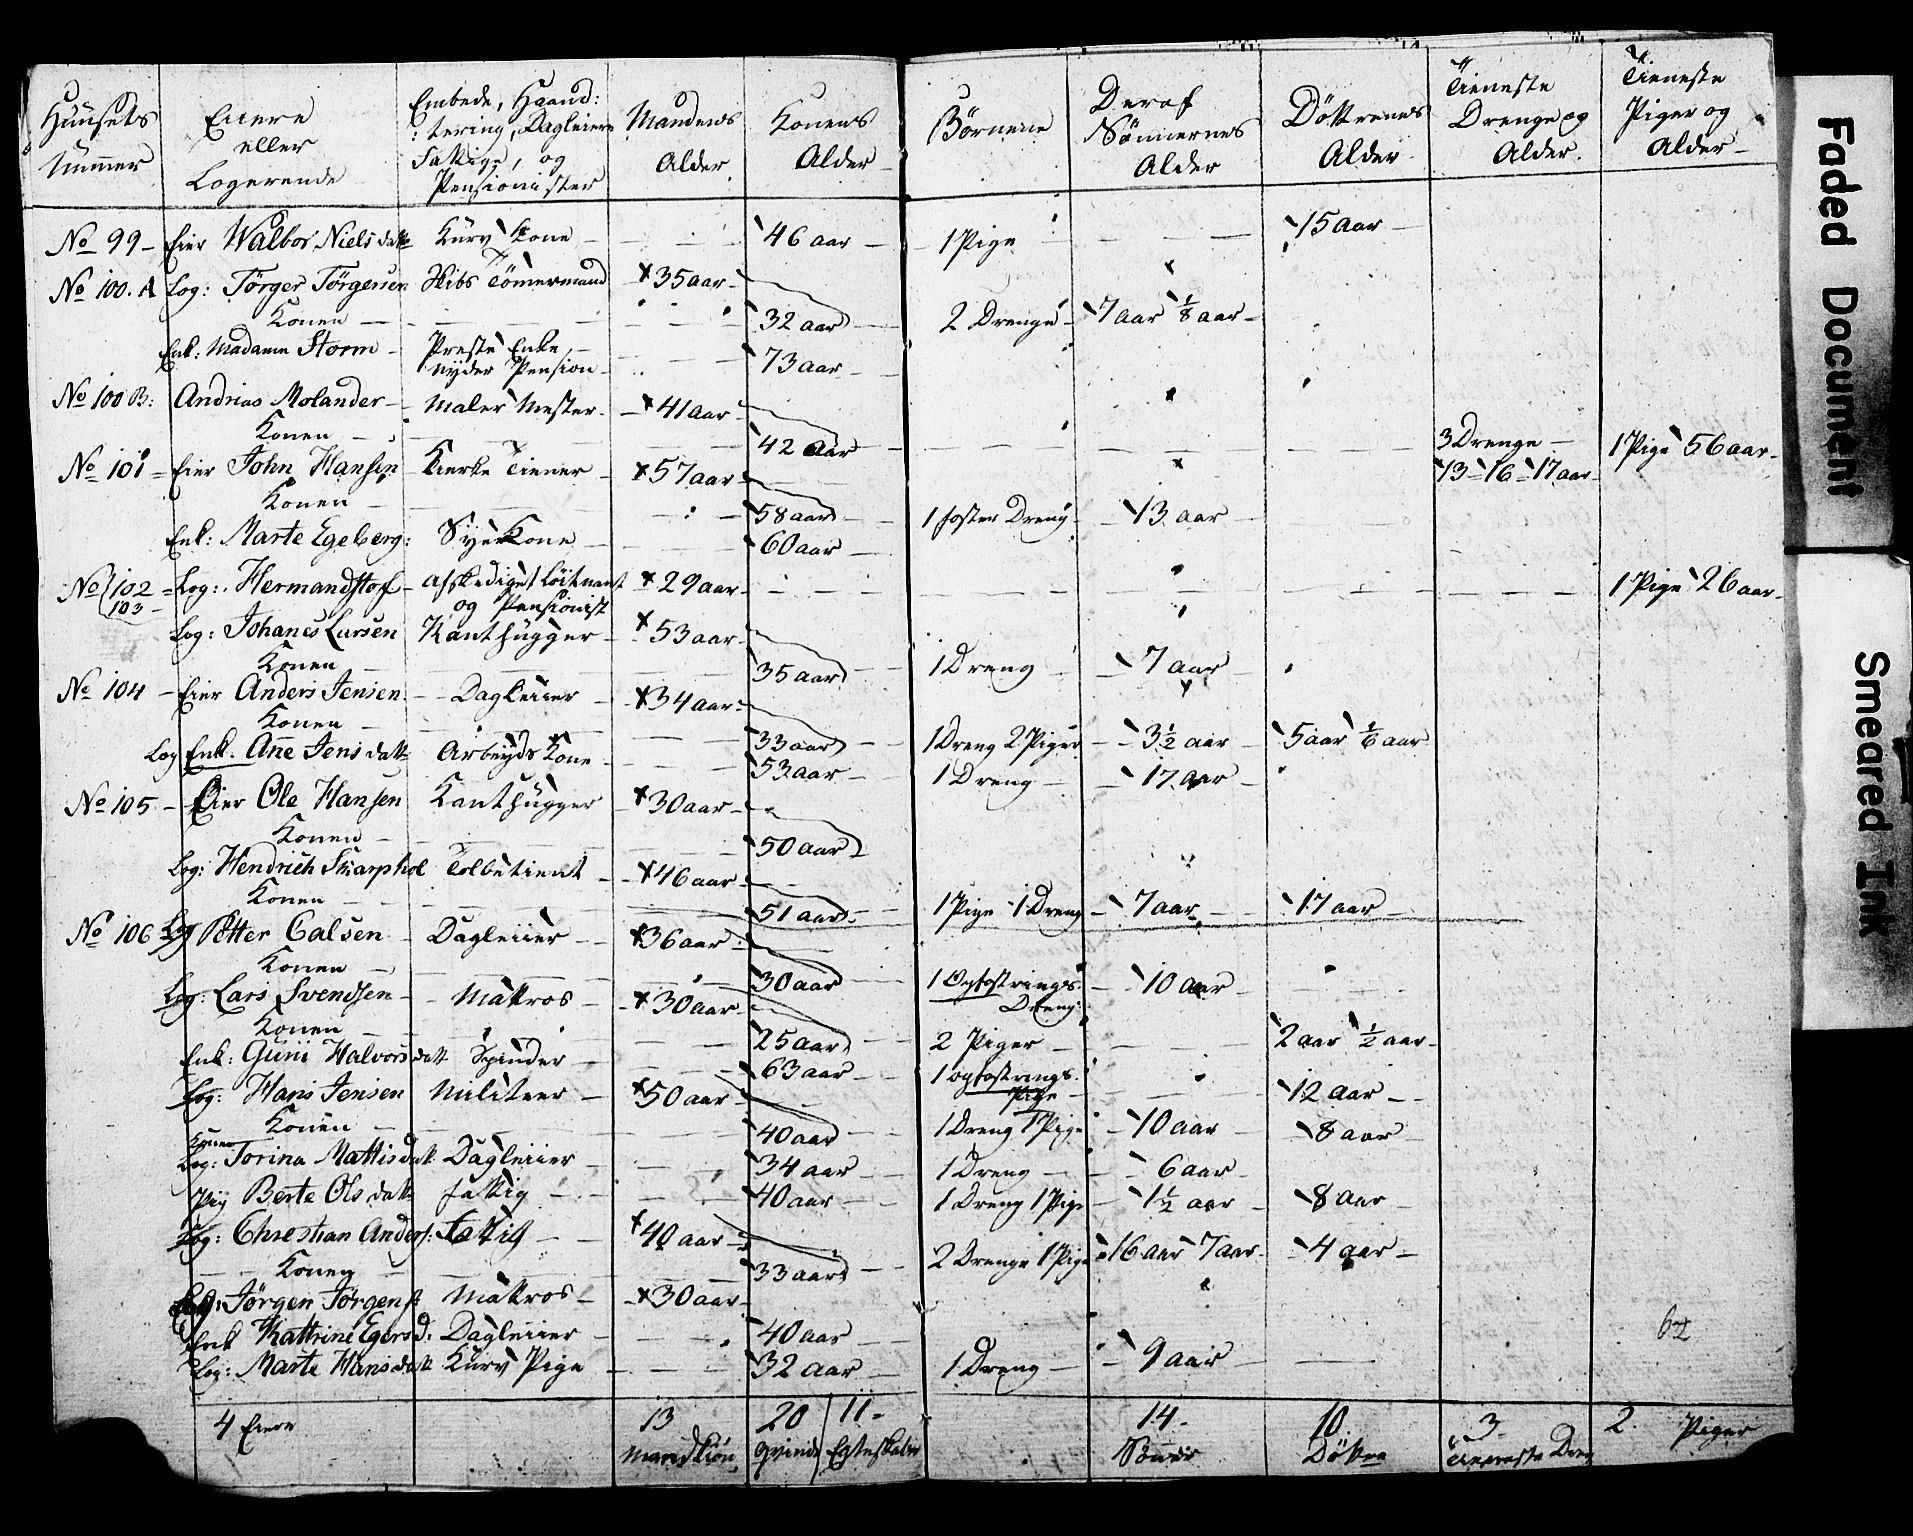 Huusets Nummer | Eiere eller Logerende | Embede, Haand: :tering, Dagleiere Fattige, og Pensionister | Mandens Alder | Konens Alder | Børnene | Deraf Sönnernes Alder | Döttrenes Alder | Tieneste Drenge og Alder. | Tieneste Piger og Alder
No 99 - Eier Walbor Niels datt | Kurv Kone | 46 aar | 1 Pige | 15 aar
No 100. A Log: Törger Törgersen | Skibs Tömermand | 35 aar
Konen | 32 aar | 2 Drenge | 7 aar 1/8 aar
Enk: Madamm Storm | Preste Enke nyder Pension | 73 aar
No 100 B: Andrias Molander | Maler Mester | 41 aar
Konen | 42 aar | 3 Drenge 13 - 16 - 17 aar | 1 Pige 56 aar
No 101 - Eier John Hansen | Kierke Tiener | 57 aar
Konen | 58 aar | 1 foster Dreng | 13 aar
Enk: Marte Egeberg: | Sye Kone | 60 aar
No 102 103 Log: Hermandstof | Afskediget Löitnant og Pensionist | 29 aar | 1 Pige 26 aar
Log: Johanes Larsen | Kanthugger | 53 aar
Konen | 35 aar | 1 Dreng | 7 aar
No 104 - Eier Anders Jensen | Dagleiier | 34 aar
Konen | 33 aar | 1 Dreng 2 Piger | 3 1/2 aar | 5 aar 1/6 aar
Log Enk. Ane Jens datt | Arbeyds Kone | 53 aar | 1 Dreng | 17 aar
No 105 - Eier Ole Hansen | Kanthugger | 30 aar
Konen | 50 aar
Log: Hendrich Skarphol | Tolbetient | 46 aar
Konen | 51 aar | 1 Pige 1 Dreng | 7 aar | 17 aar
No 106 Log Petter Calsen | Dagleiier | 36 aar
Konen | 30 aar | 1 Opfostrings Dreng | 10 aar
Log: Lars Svendsen | Matros | 30 aar
Konen | 25 aar | 2 Piger | 2 aar 1/2 aar
Enk: Guni Halvors datt | Spinder | 63 aar | 1 opfostrings Pige | 12 aar
Log: Hans Jensen | Militær | 50 aar
Konen | 40 aar | 1 Dreng 1 Pige | 10 aar | 8 aar
Konen Log: Torina Mattis datt | Dagleiier | 34 aar | 1 Dreng | 6 aar
Pig Berte Ols datt | fattig | 40 aar | 1 Dreng 1 Pige | 1 1/2 aar | 8 aar
Log: Chrestian Anders: | Fattig | 40 aar
Konen | 33 aar | 2 Drenge 1 Pige | 16 aar 7 aar | 4 aar
Log: Jörgen Jörgens: | Matros | 30 aar
Enk Kattrine Egersd: | Dagleiier | 40 aar
Log: Marte Hans datt | Kurv Pige | 32 aar | 1 Dreng | 9 aar
62
4 Eiere | 13 Mandkiön | 20 Qvinde | 11 Egteskaber | 14 Sönner | 10 Döttre | 3 Tieneste Dren | 2 Piger
Faded Document
Smeared Ink